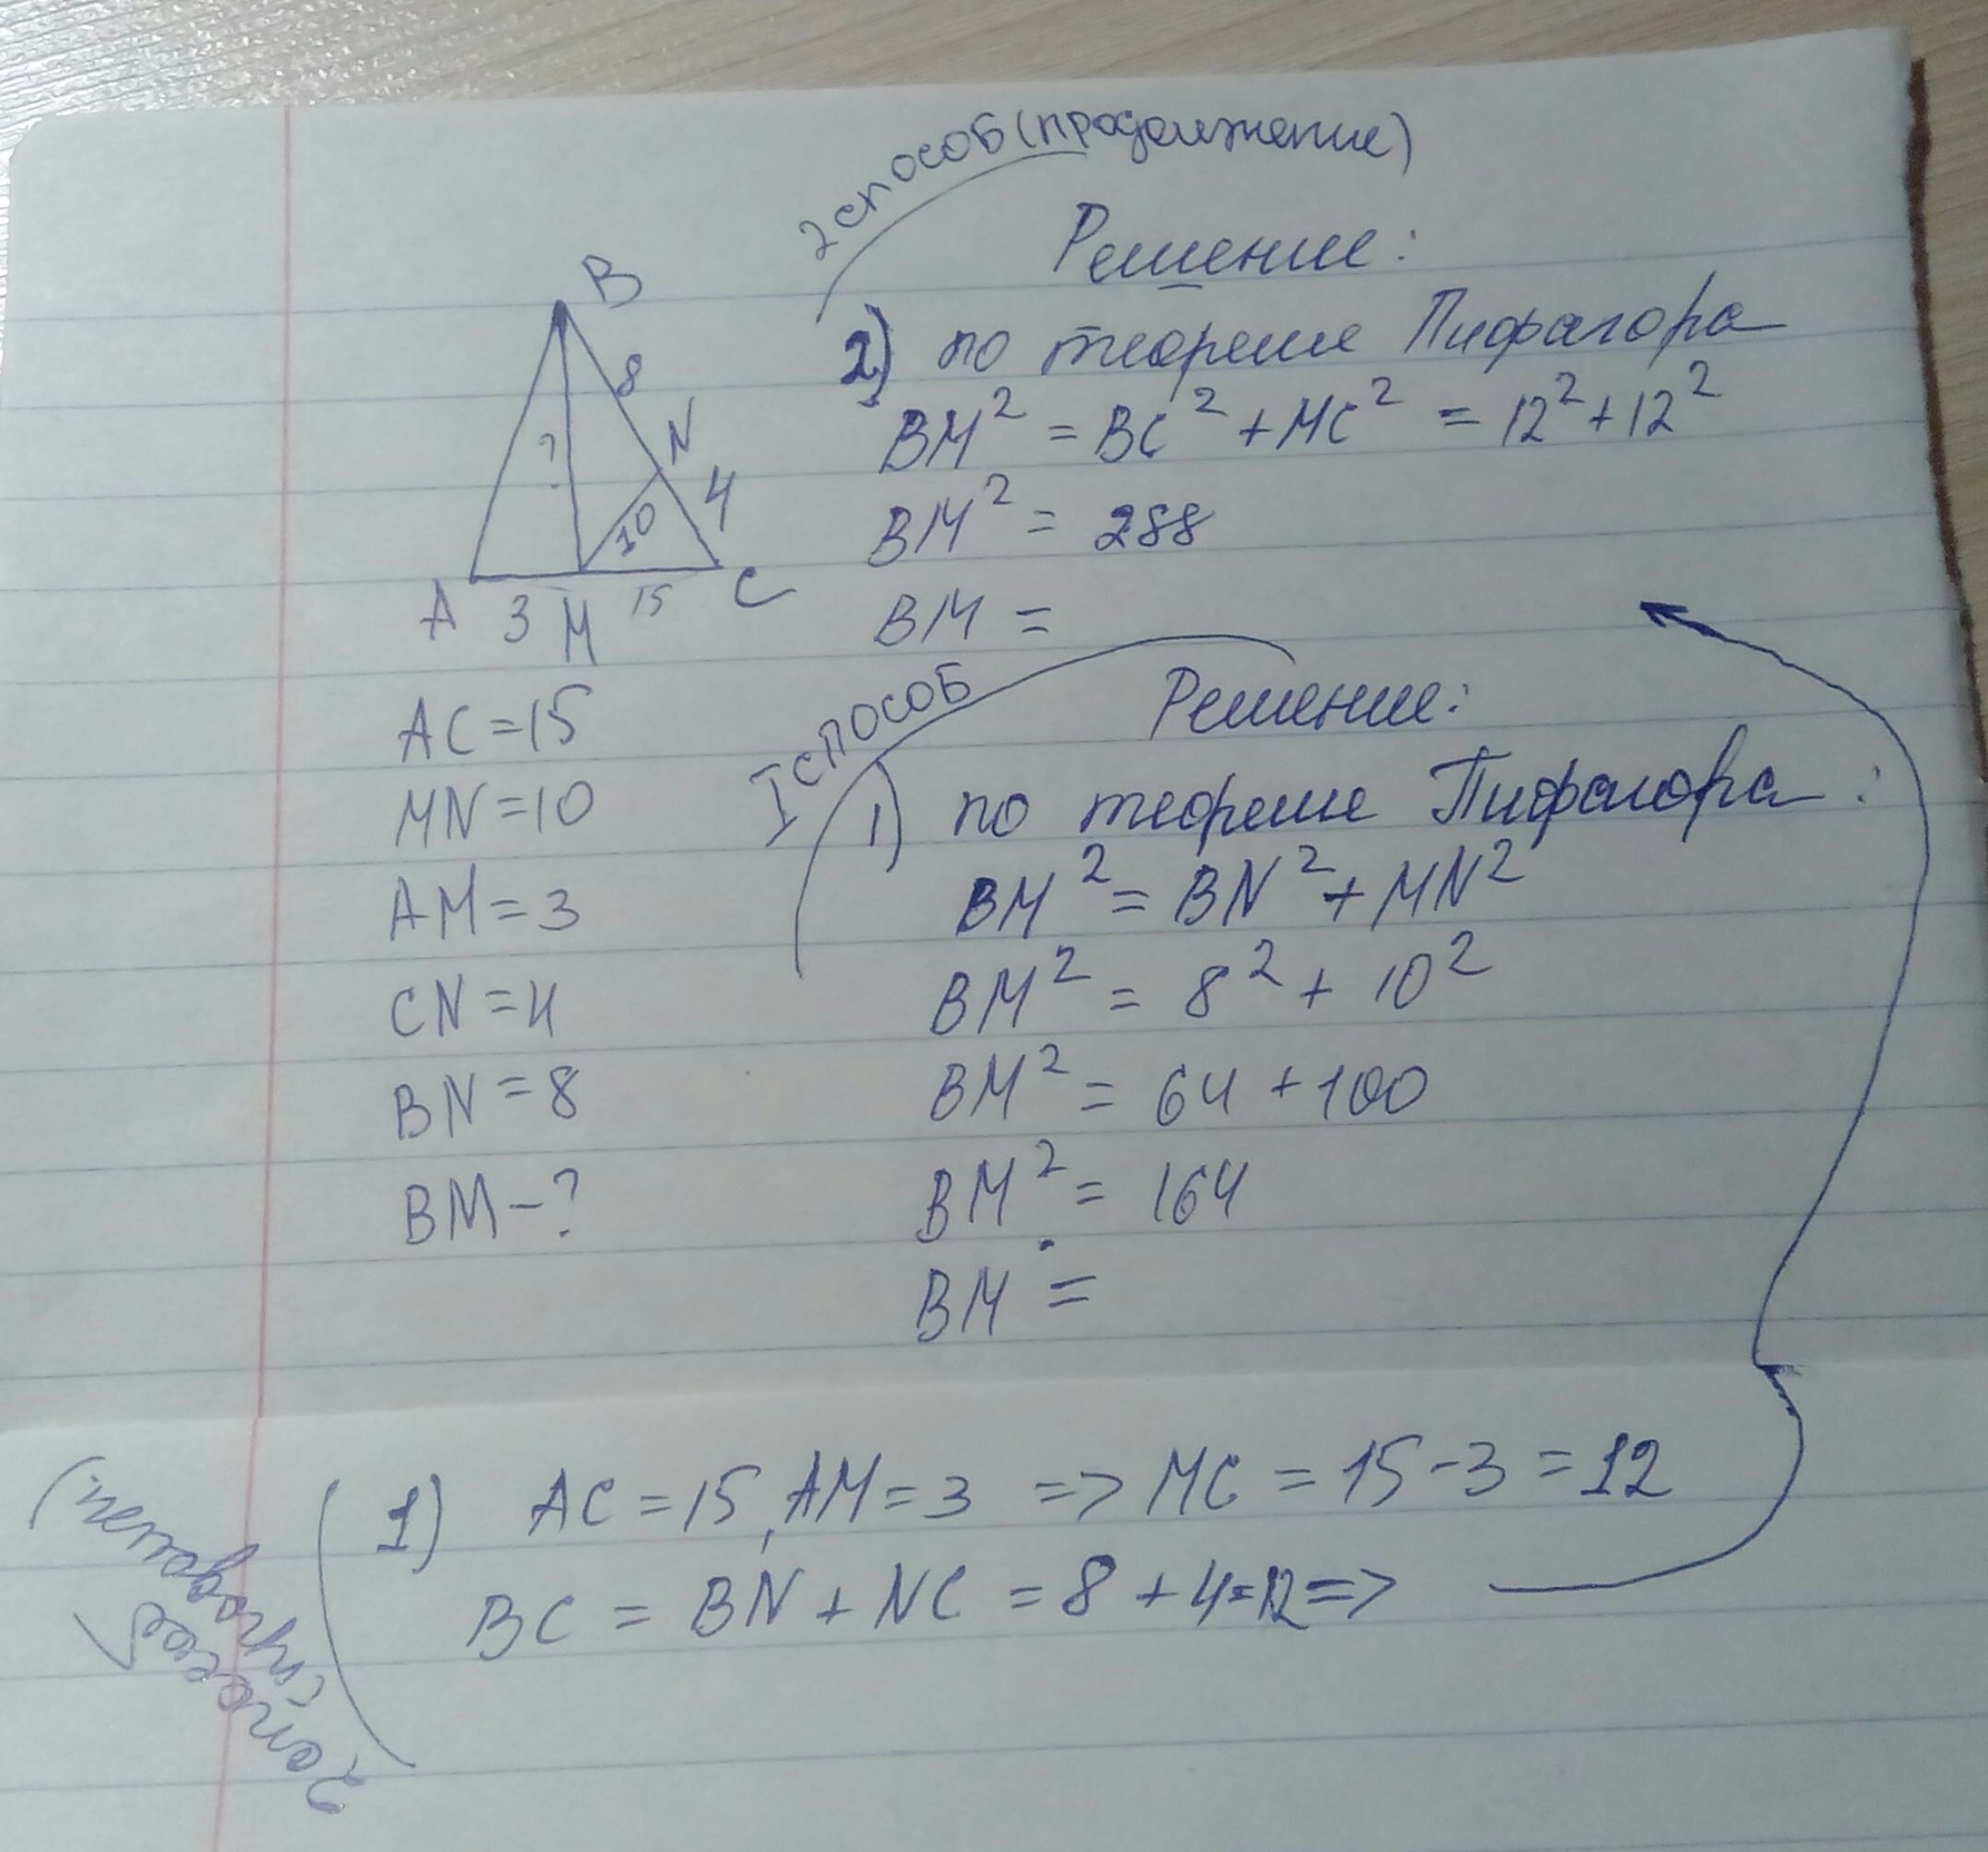 2 способ (продолжение)
Решение:
B
8
?
N
10
4
A 3 M 15 C
2) по теореме Пифагора
BM² = BC² + MC² = 12² + 12²
BM² = 288
BM =
AC = 15
MN = 10
AM = 3
CN = 4
BN = 8
BM - ?
I способ
Решение:
1) по теореме Пифагора:
BM² = BN² + MN²
BM² = 8² + 10²
BM² = 64 + 100
BM² = 164
BM =
2 способ
1) AC = 15, AM = 3 => MC = 15 - 3 = 12
BC = BN + NC = 8 + 4 = 12 =>